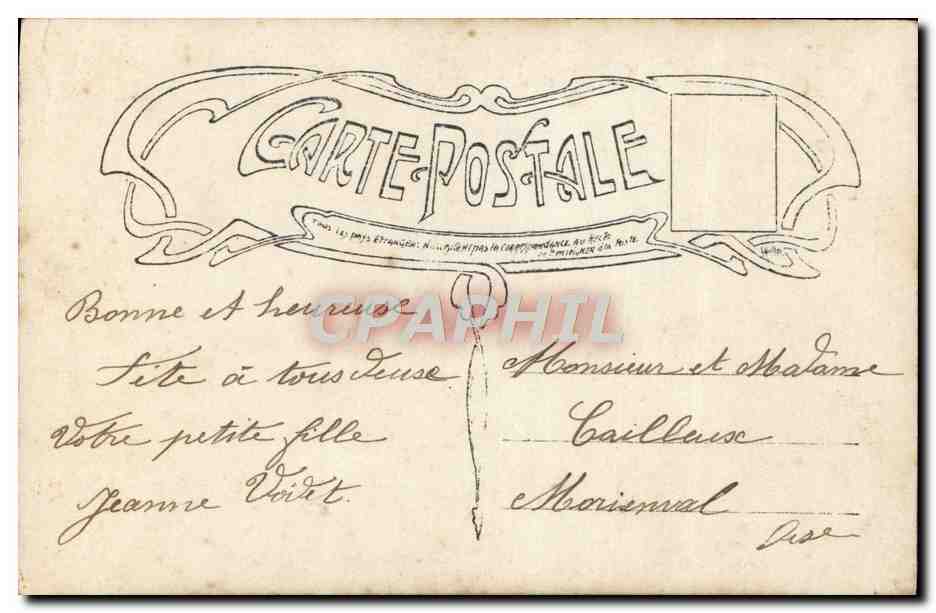 CARTE POSTALE
Tous les pays étrangers n'acceptent pas la correspondance au recto
Bonne et heureuse
fête à tous deuse
Votre petite fille
Jeanne Voidet.
Monsieur et Madame
Cailleux
Morienval
Oise
CPAPHIL